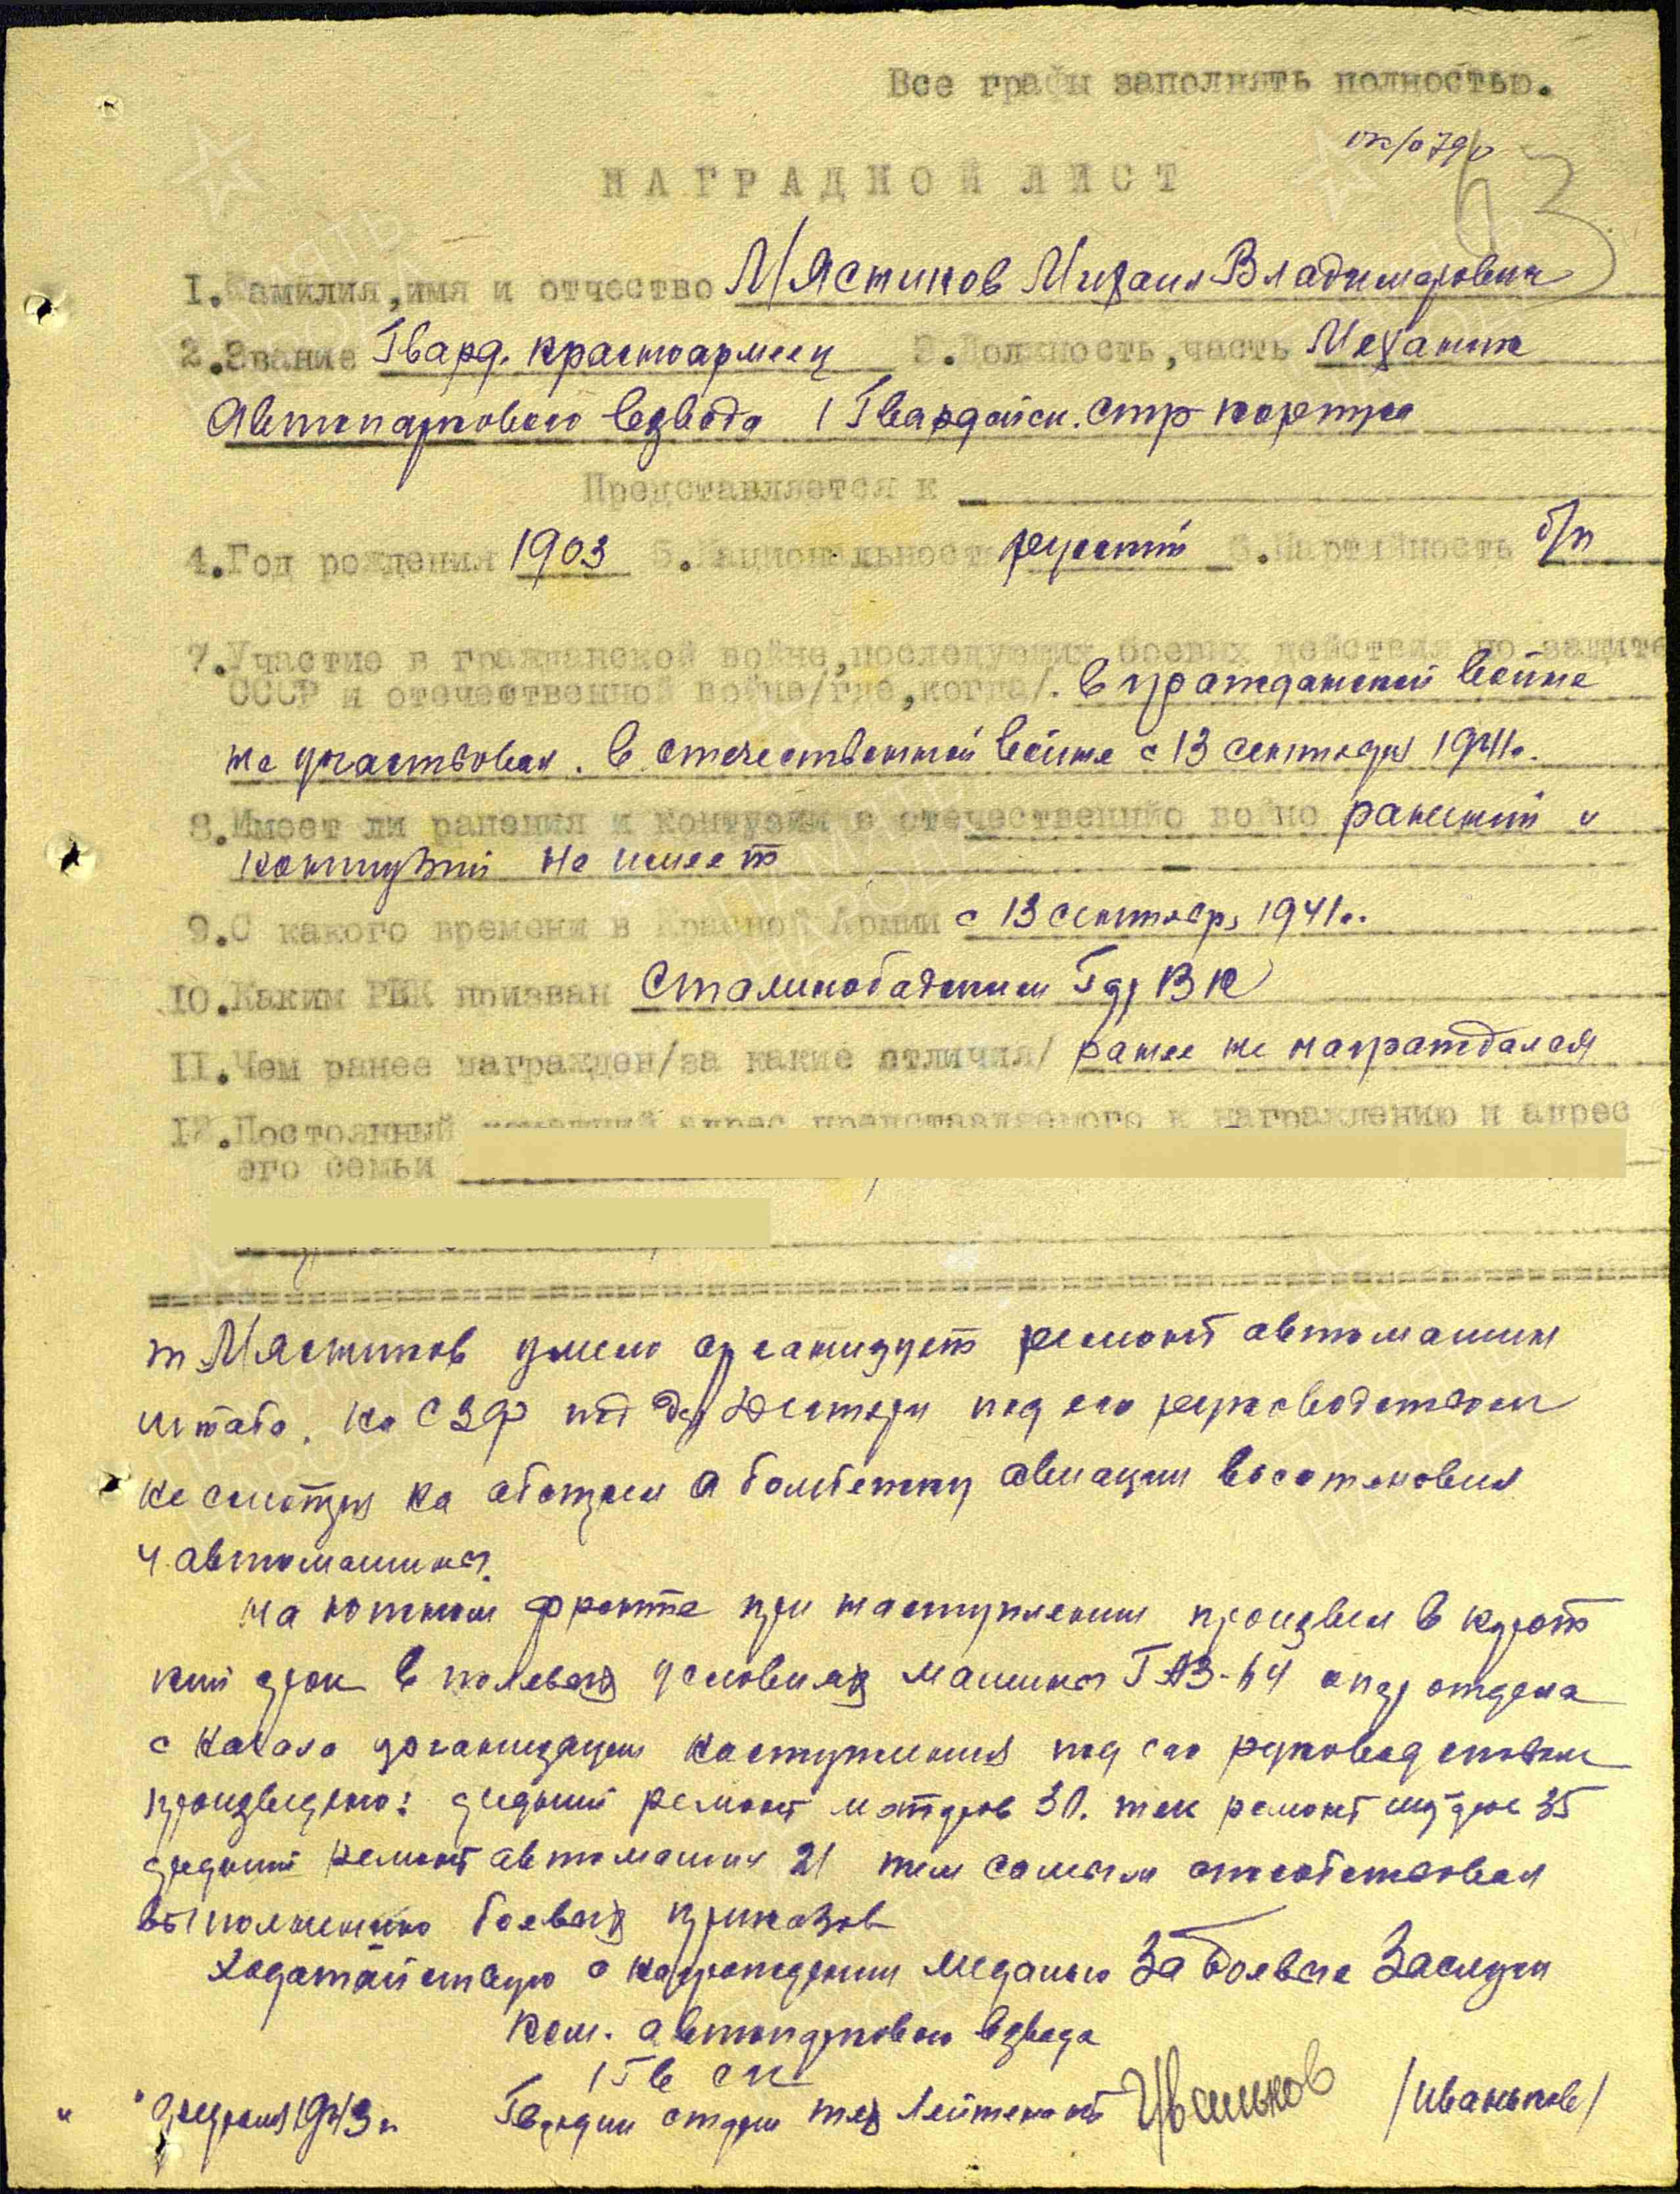 Все графы заполнять полностью.
НАГРАДНОЙ ЛИСТ
63
1.Фамилия,имя и отчество Мястинов Михаил Владимирович
2.Звание Гвард. красноармеец 3.Должность,часть Механик
Автопаркового взвода 1 Гвардейск. стр корпуса
Представляется к
4.Год рождения 1903 5.Национальность русский 6.Партийность б/п
7.Участие в гражданской войне,последующих боевых действия по защите
СССР и отечественной войне/где,когда/. В гражданской войне
не участвовал. в отечественной войне с 13 сентября 1941г.
8.Имеет ли ранения и контузии в отечественно войне ранений и
контузий не имеет
9.С какого времени в Красной Армии с 13 сентябр 1941г.
10.Каким РВК призван Сталинобадским Гор ВК
11.Чем ранее награжден/за какие отличия/ ранее не награждался
12.Постоянный домашний адрес представляемого к награждению и адрес
его семьи
т. Мястинов умело организует ремонт автомашин
штаба. На СЗФ под под его руководством
не смотря на обстрел и бомбежку авиации восстановил
4 автомашины.
На южном фронте при наступлении произвел в корот
кий срок в полевых условиях машины ГАЗ-64 опер отдела
с начала организации наступления под его руководством
произведено: средний ремонт моторов 30. тек ремонт 35
средний ремонт автомашин 21 тем самым способствовал
выполнению боевых приказов
Ходатайствую о награждении медалью За Боевые Заслуги
Ком. автопаркового взвода
1 Гв СК
" " 1943 г. Гвардии старш тех Лейтенант Иваньков /Иваньков/